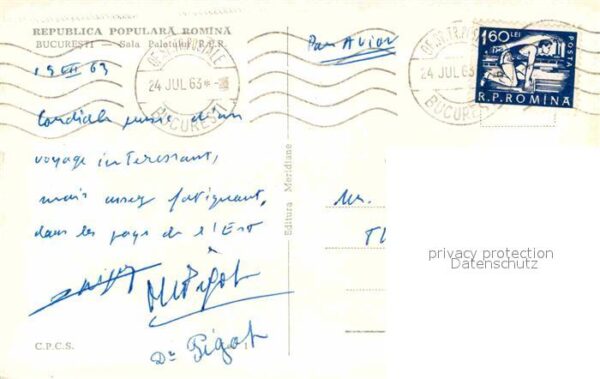 REPUBLICA POPULARĂ ROMÎNĂ
BUCUREȘTI — Sala Palatului R.P.R.
Par Avion
24 JUL 63
BUCUREȘTI
24 JUL 63
BUCUREȘTI
1 60 LEI
POSTA
R.P.ROMINA
63
d'un
voyage intéressant,
mais assez fatiguant,
dans les pays de l'Est
Dr Pigot
Editura Meridiane
Mr.
privacy protection
Datenschutz
C.P.C.S.
1